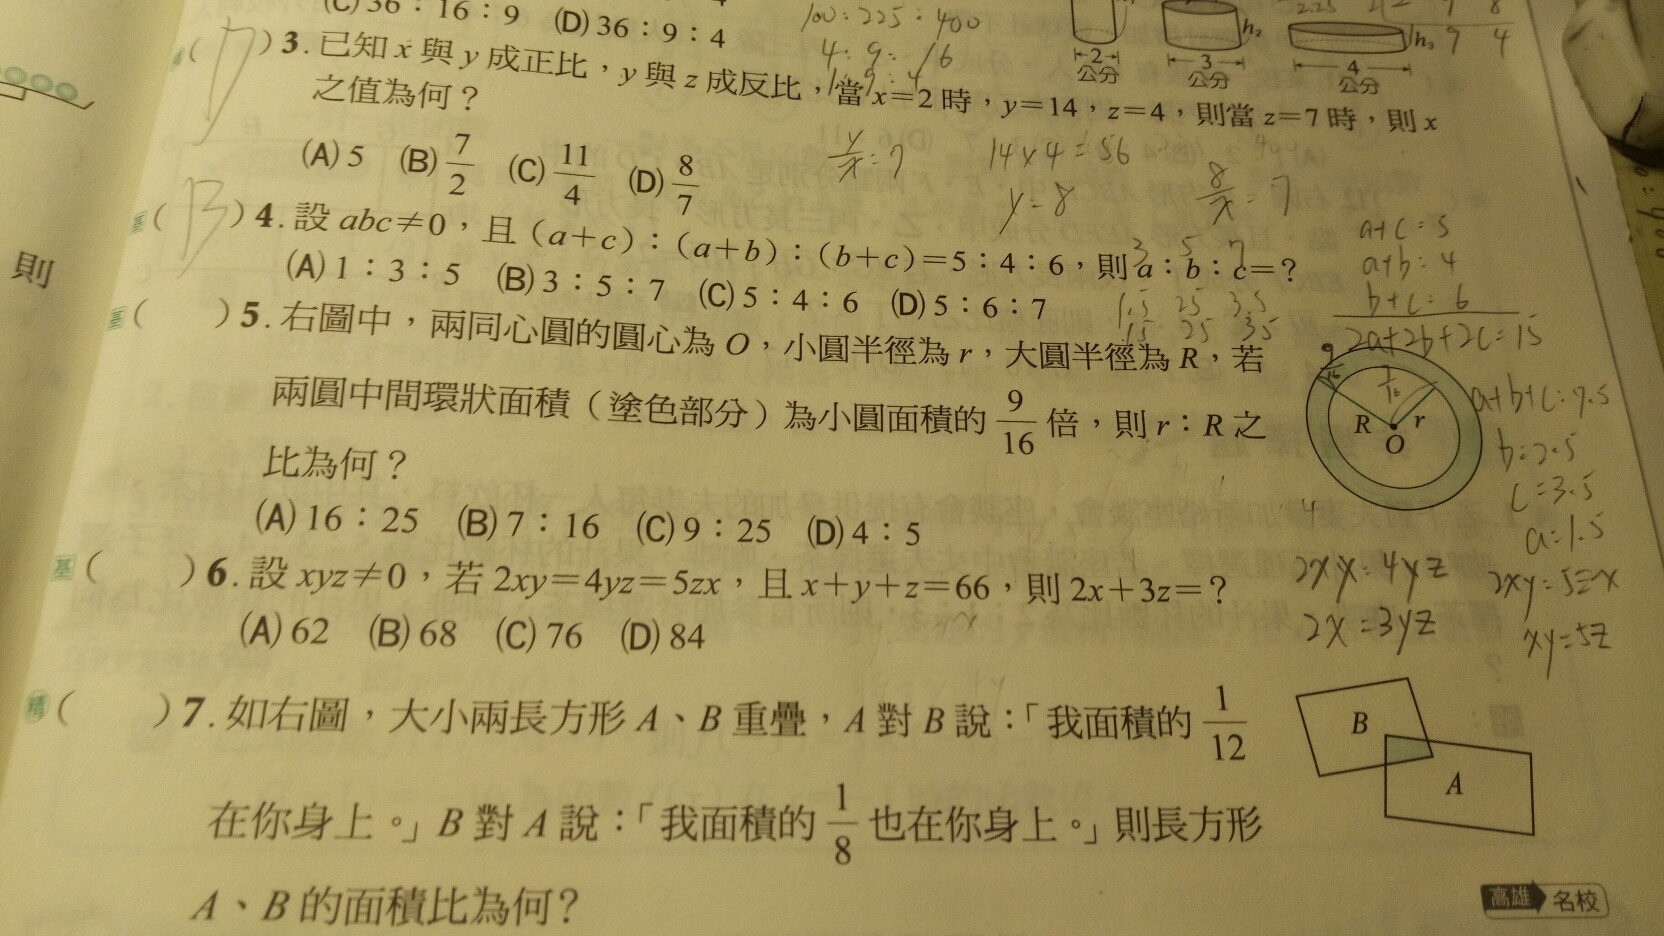 (C) 36：16：9 (D) 36：9：4
100：225：400
4：9：16
h₂
h₃
2
公分
3
公分
4
公分
9 4
( D ) 3. 已知 x 與 y 成正比，y 與 z 成反比，當 x=2 時，y=14，z=4，則當 z=7 時，則 x
之值為何？
(A) 5 (B) 7/2 (C) 11/4 (D) 8/7
y/x=7 14×4=56
y=8 8/x=7
基 ( B ) 4. 設 abc≠0，且（a+c）：（a+b）：（b+c）=5：4：6，則 a：b：c=？
3 5 7
(A) 1：3：5 (B) 3：5：7 (C) 5：4：6 (D) 5：6：7
1.5 25 3.5
15 25 35
a+c=5
a+b=4
b+c=6
2a+2b+2c=15
a+b+c=7.5
b=2.5
c=3.5
a=1.5
基 ( ) 5. 右圖中，兩同心圓的圓心為 O，小圓半徑為 r，大圓半徑為 R，若
兩圓中間環狀面積（塗色部分）為小圓面積的 9/16 倍，則 r：R 之
比為何？
(A) 16：25 (B) 7：16 (C) 9：25 (D) 4：5
9/16
R r
O
基 ( ) 6. 設 xyz≠0，若 2xy=4yz=5zx，且 x+y+z=66，則 2x+3z=？
(A) 62 (B) 68 (C) 76 (D) 84
2xy=4yz
2x=3yz
2xy=5zx
xy=5z
精 ( ) 7. 如右圖，大小兩長方形 A、B 重疊，A 對 B 說：「我面積的 1/12
在你身上。」B 對 A 說：「我面積的 1/8 也在你身上。」則長方形
A、B 的面積比為何？
B
A
高雄 名校
則